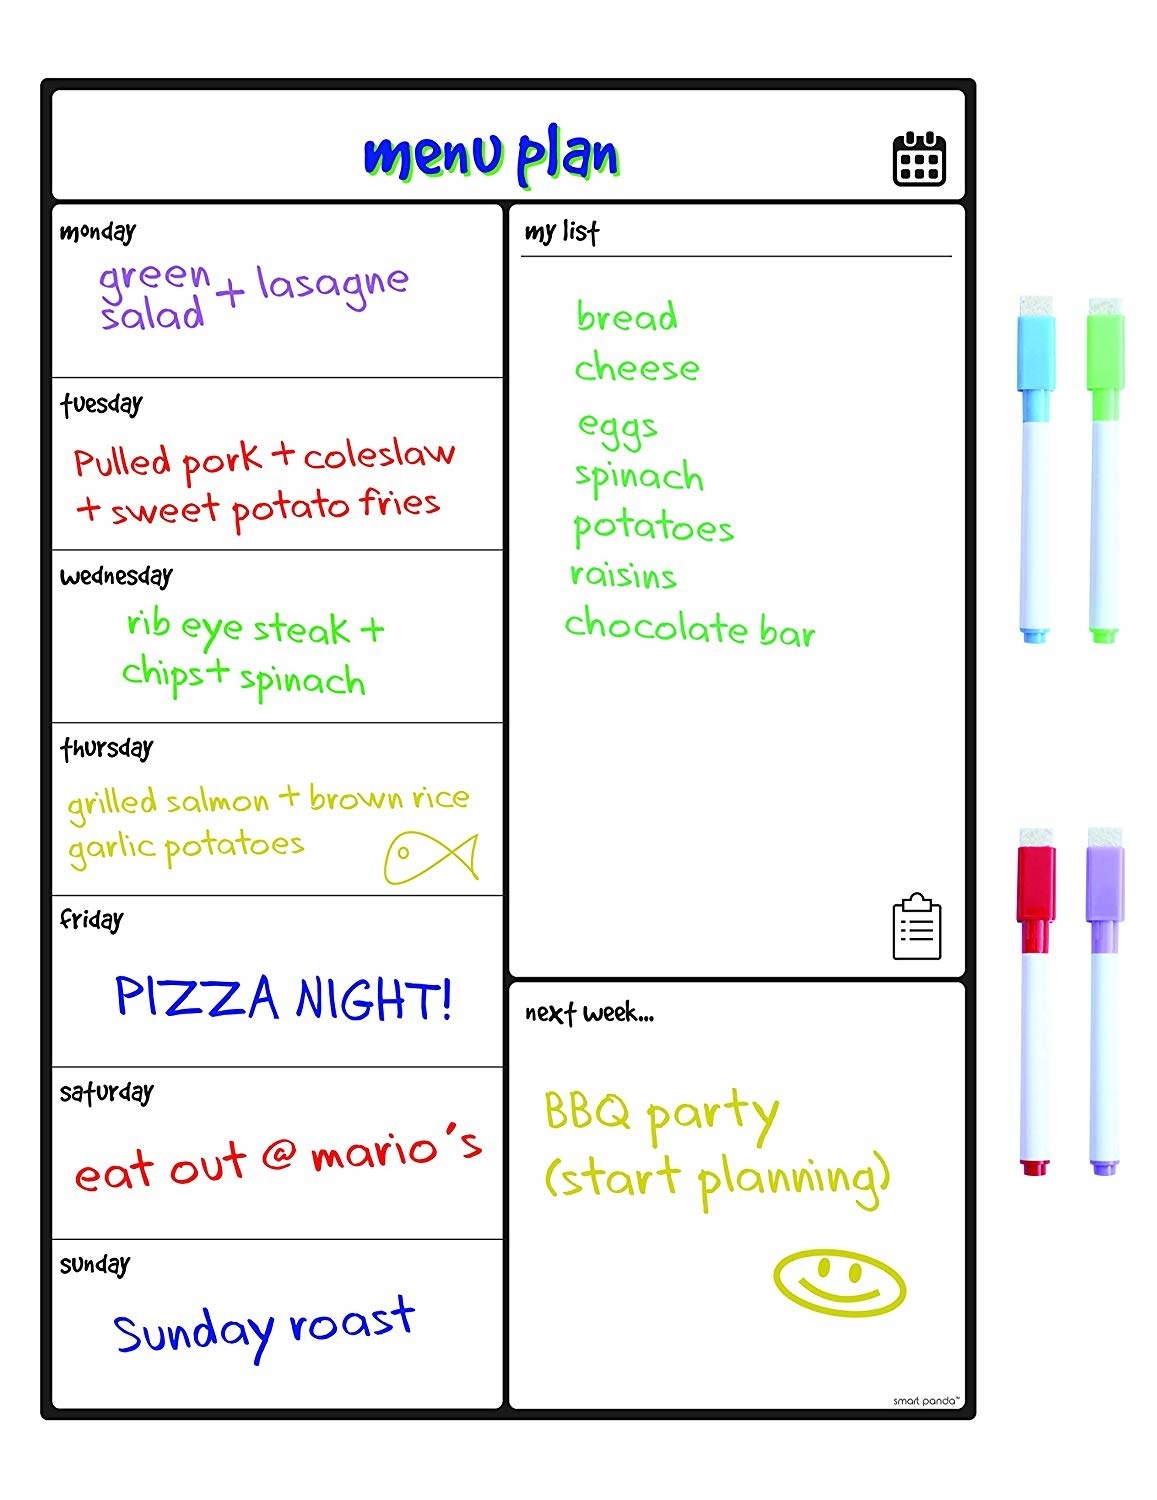 menu plan
monday
green
salad + lasagne
tuesday
Pulled pork + coleslaw
+ sweet potato fries
wednesday
rib eye steak +
chips + spinach
thursday
grilled salmon + brown rice
garlic potatoes
friday
PIZZA NIGHT!
saturday
eat out @ mario's
sunday
Sunday roast
my list
bread
cheese
eggs
spinach
potatoes
raisins
chocolate bar
next week...
BBQ party
(start planning)
smart panda™